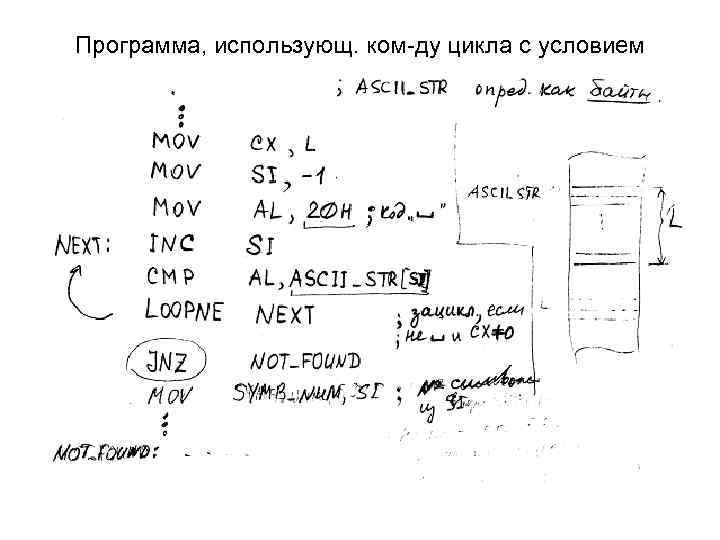 Программа, использующ. ком-ду цикла с условием
; ASCII_STR опред. как байты.
MOV CX, L
MOV SI, -1
MOV AL, 20H ; код "␣"
ASCII_STR
L
NEXT: INC SI
CMP AL, ASCII_STR[SI]
LOOPNE NEXT ; зацикл, если
; не ␣ и CX≠0
JNZ NOT_FOUND
MOV SYMB_NUM, SI ; символа
из SI
NOT_FOUND: